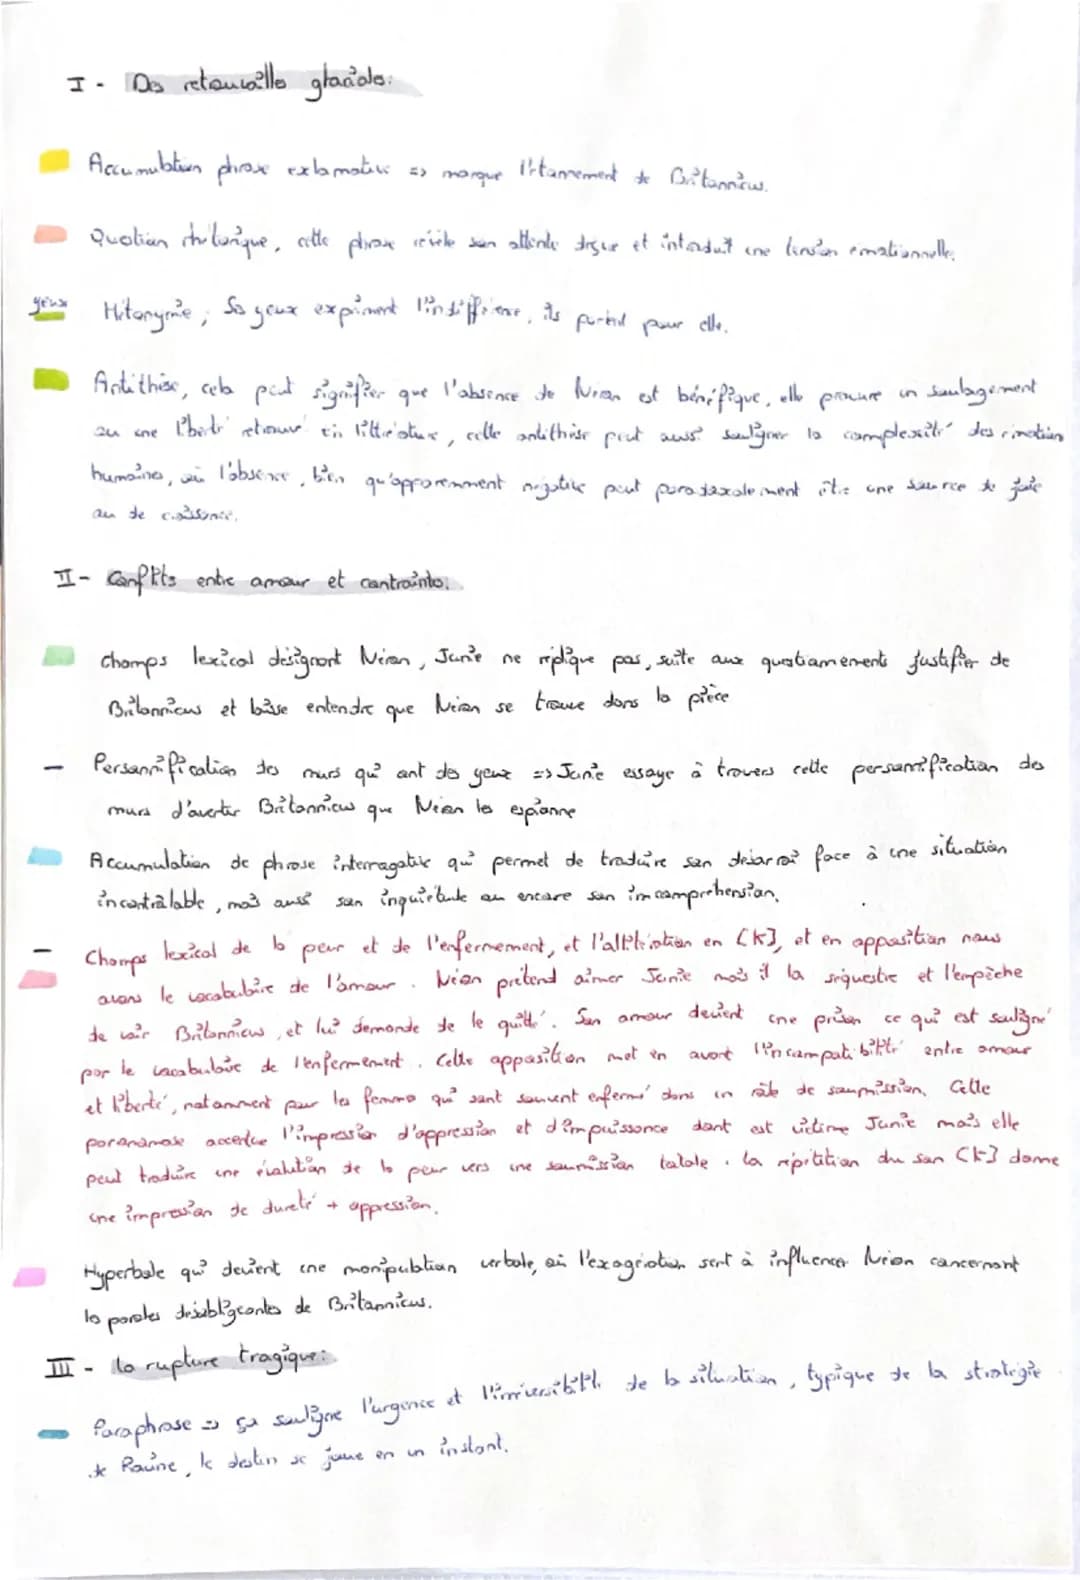 I - Des retrouvailles glaciales:
Accumulation phrase exclamative => marque l'étonnement de Britannicus.
Question rhétorique, cette phrase révèle son attente déçue et introduit une tension émotionnelle.
yeux Métonymie, Ses yeux expriment l'indifférence, ils parlent pour elle.
Antithèse, cela peut signifier que l'absence de Néron est bénéfique, elle procure un soulagement
ou une liberté retrouvé en littérature, cette antithèse peut aussi souligner la complexité des émotions
humaines, où l'absence, bien qu'apparemment négative peut paradoxalement être une source de joie
ou de
II - Conflits entre amour et contrainte:
Champs lexical désignant Néron, Junie ne réplique pas, suite aux questionnements justifier de
Britannicus et laisse entendre que Néron se trouve dans la pièce
- Personnification des murs qui ont des yeux => Junie essaye à travers cette personnification des
murs d'avertir Britannicus que Néron les espionne
Accumulation de phrase interrogative qui permet de traduire son désarroi face à une situation
incontrôlable, mais aussi son inquiétude ou encore son imcompréhension.
- Champs lexical de la peur et de l'enfermement, et l'allitération en [K], et en opposition nous
avons le vocabulaire de l'amour. Néron prétend aimer Junie mais il la séquestre et l'empêche
de voir Britannicus, et lui demande de le quitté. Son amour devient une prison ce qui est souligné
par le vocabulaire de l'enfermement. Cette opposition met en avant l'incompatibilité entre amour
et liberté, notamment pour les femmes qui sont souvent enfermé dans un rôle de soumission. Cette
paronomase accentue l'impression d'oppression et d'impuissance dont est victime Junie mais elle
peut traduire une évolution de la peur vers une soumission totale. La répitition du son [K] donne
une impression de dureté + oppression.
Hyperbole qui devient une manipulation verbale, où l'exagération sert à influencer Néron concernant
les paroles désobligeantes de Britannicus.
III - la rupture tragique:
Paraphrase => ça souligne l'urgence et l'irréversibilité de la situation, typique de la stratégie
de Racine, le destin se joue en un instant.